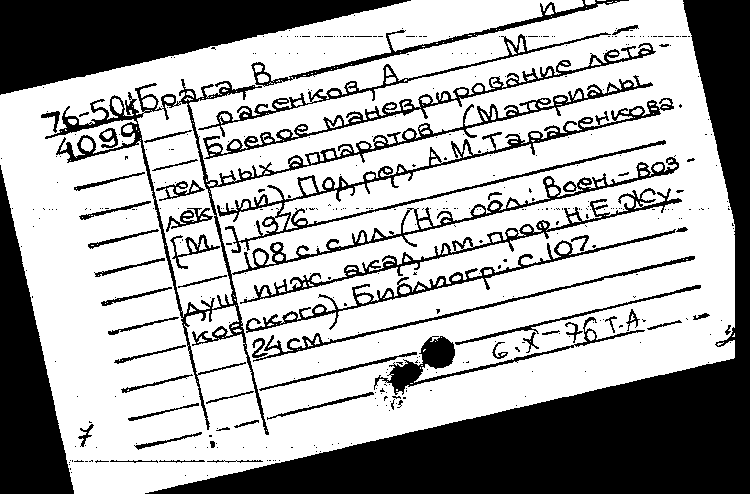 76-50к Брага, В Г и
4099 расенков, А. М
Боевое маневрирование лета-
тельных аппаратов. (Материалы
лекций). Под. ред. А.М. Тарасенкова.
[М.], 1976.
108 с. с ил. (На обл.: Воен.-воз-
душ. инж. акад. им. проф. Н.Е. Жу-
ковского). Библиогр.: с. 107.
24 см.
6.X-76 Т.А.
7